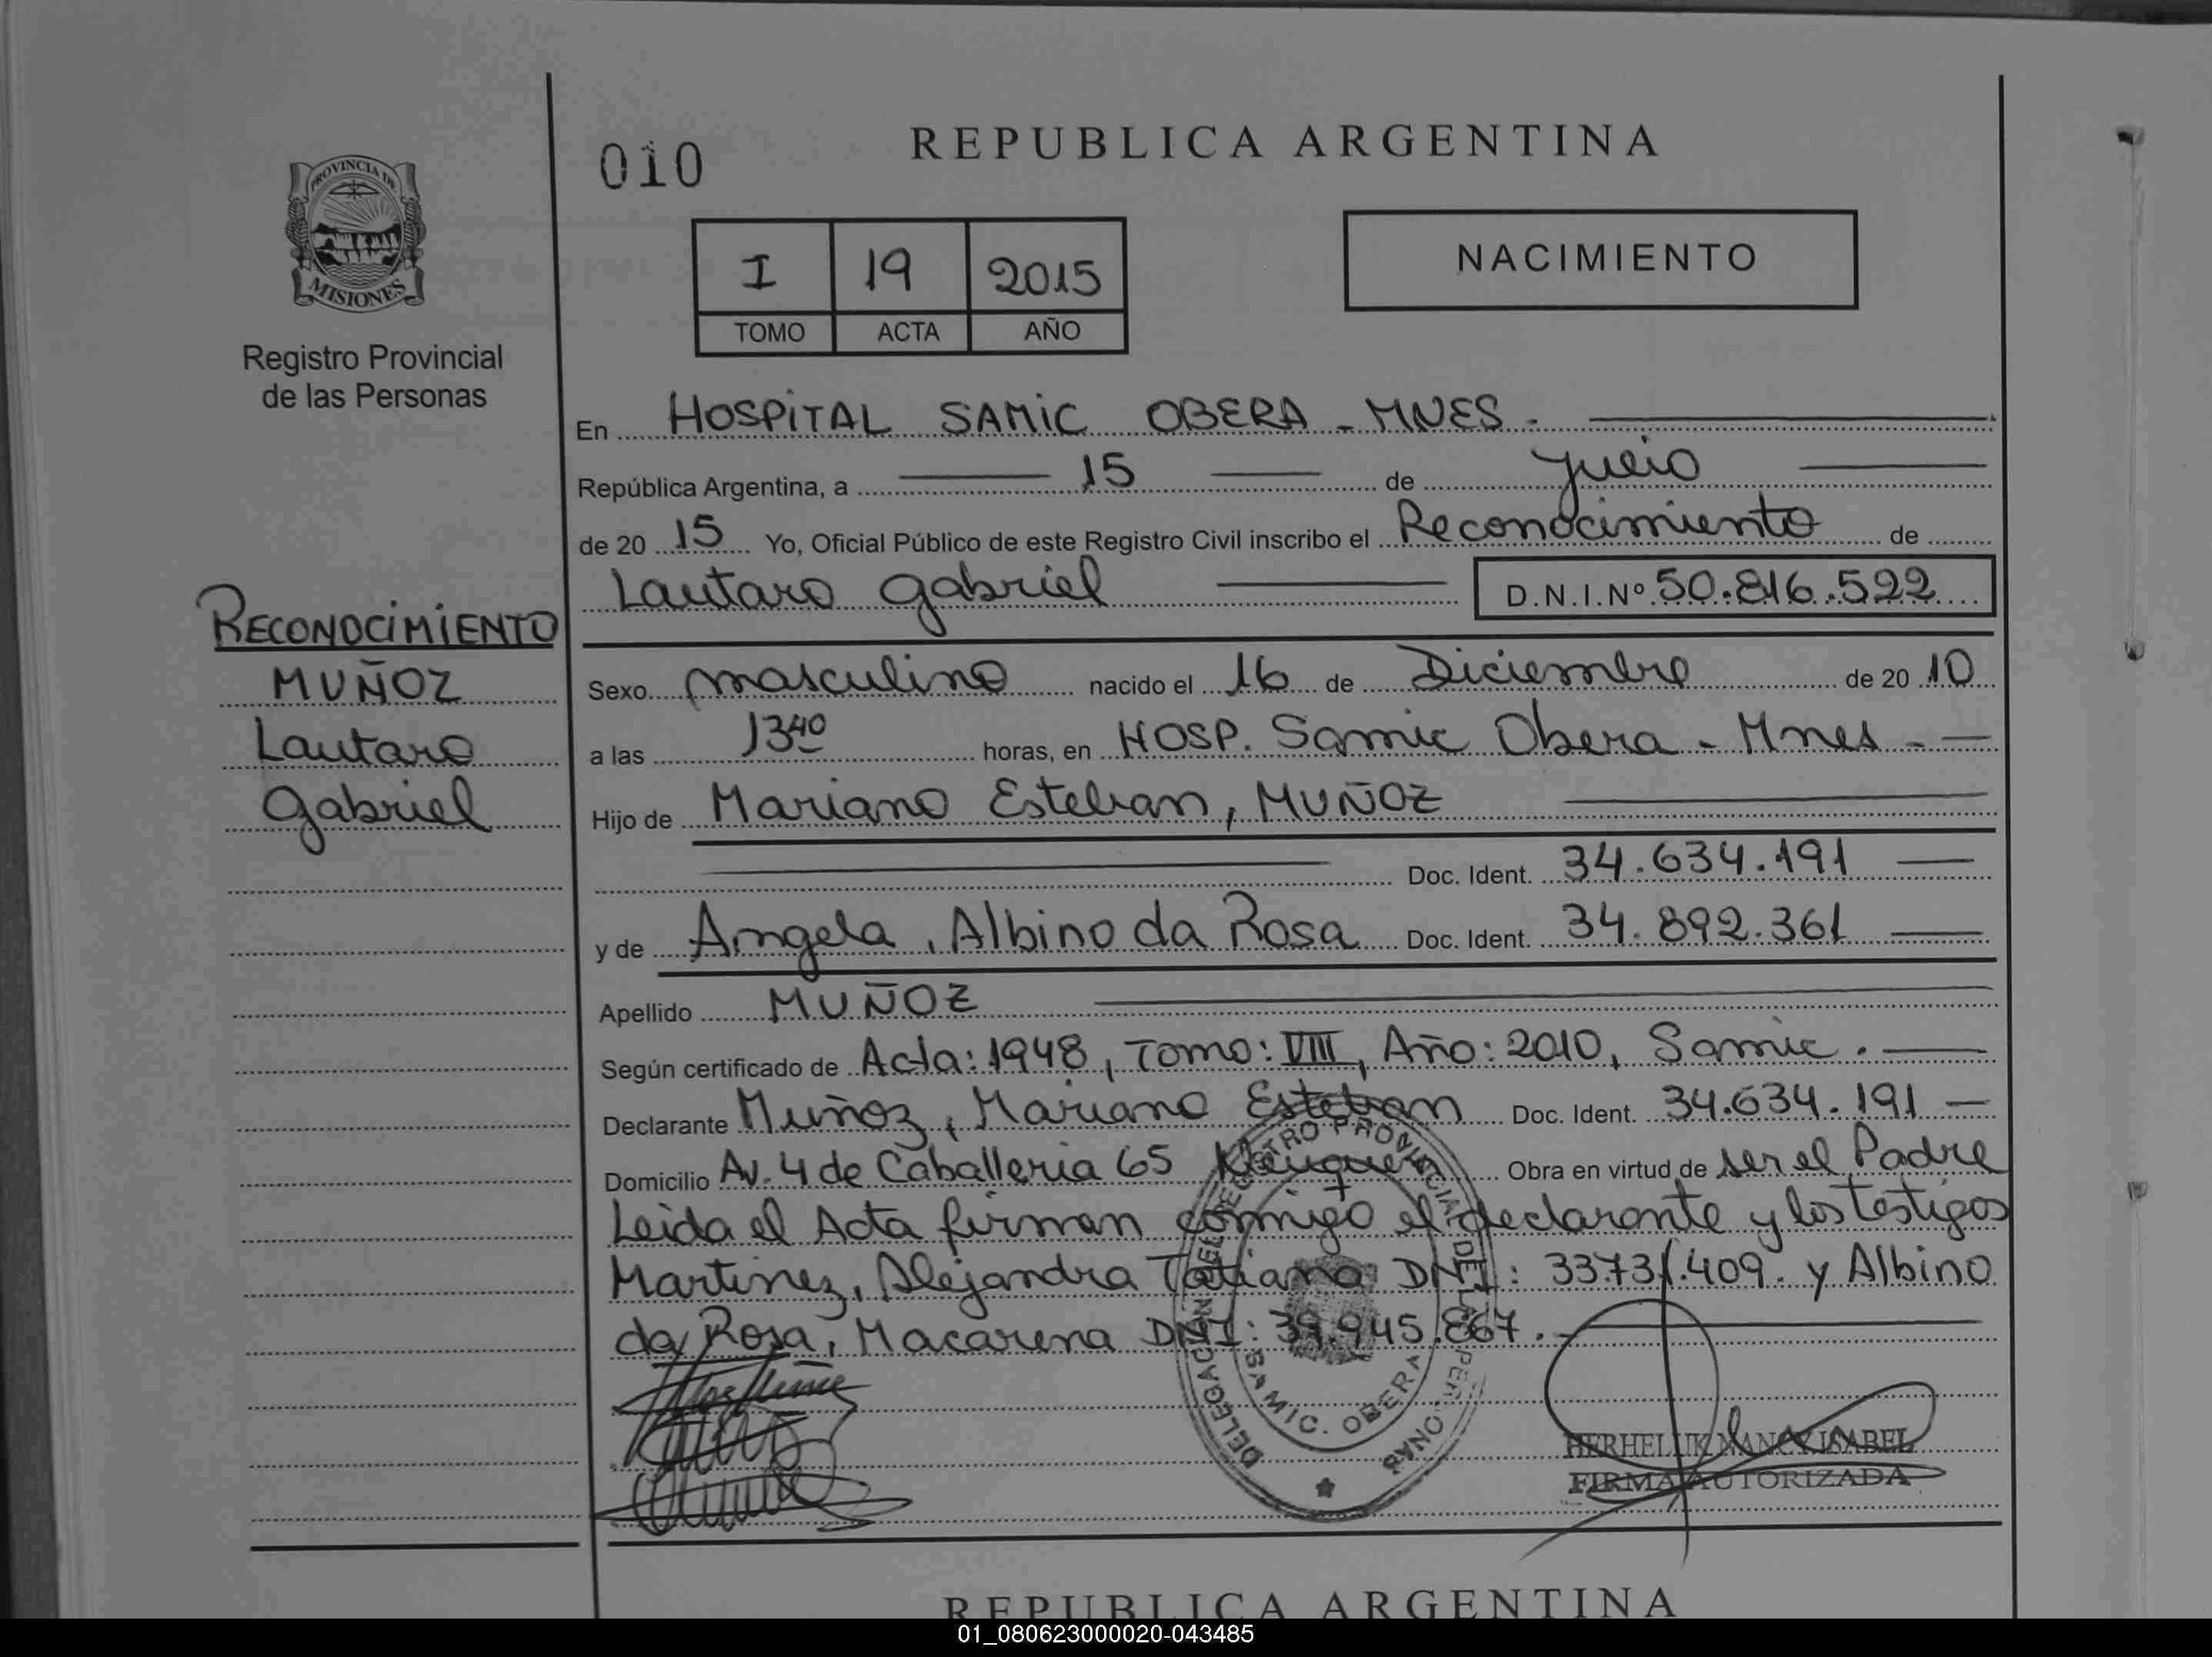 PROVINCIA DE
MISIONES
Registro Provincial
de las Personas
010
REPUBLICA ARGENTINA
I 19 2015
TOMO ACTA AÑO
NACIMIENTO
En HOSPITAL SAMIC OBERA - MNES.
República Argentina, a 15 de Julio
de 20 15 Yo, Oficial Público de este Registro Civil inscribo el Reconocimiento de
Lautaro Gabriel D.N.I.Nº 50.816.522
RECONOCIMIENTO
MUÑOZ
Lautaro
Gabriel
Sexo masculino nacido el 16 de Diciembre de 20 10
a las 13 40 horas, en HOSP. Samic Obera - Mnes -
Hijo de Mariano Esteban, MUÑOZ
Doc. Ident. 34.634.191
y de Angela, Albino da Rosa Doc. Ident. 34.892.361
Apellido MUÑOZ
Según certificado de Acta: 1948, Tomo: VIII, Año: 2010, Samic.
Declarante Muñoz, Mariano Esteban Doc. Ident. 34.634.191
Domicilio Av. 4 de Caballeria 65 Obra en virtud de ser el Padre
Leida el Acta firman conmigo el declarante y los testigos
Martinez, Alejandra Tatiana DNI: 33731.409. y Albino
da Rosa, Macarena DNI: 39.945.867.
DELEGACION DEL REGISTRO PROVINCIAL DE LAS PERSONAS
SAMIC. OBERA
HERHELUK NANCY ISABEL
FIRMA AUTORIZADA
REPUBLICA ARGENTINA
01_080623000020-043485